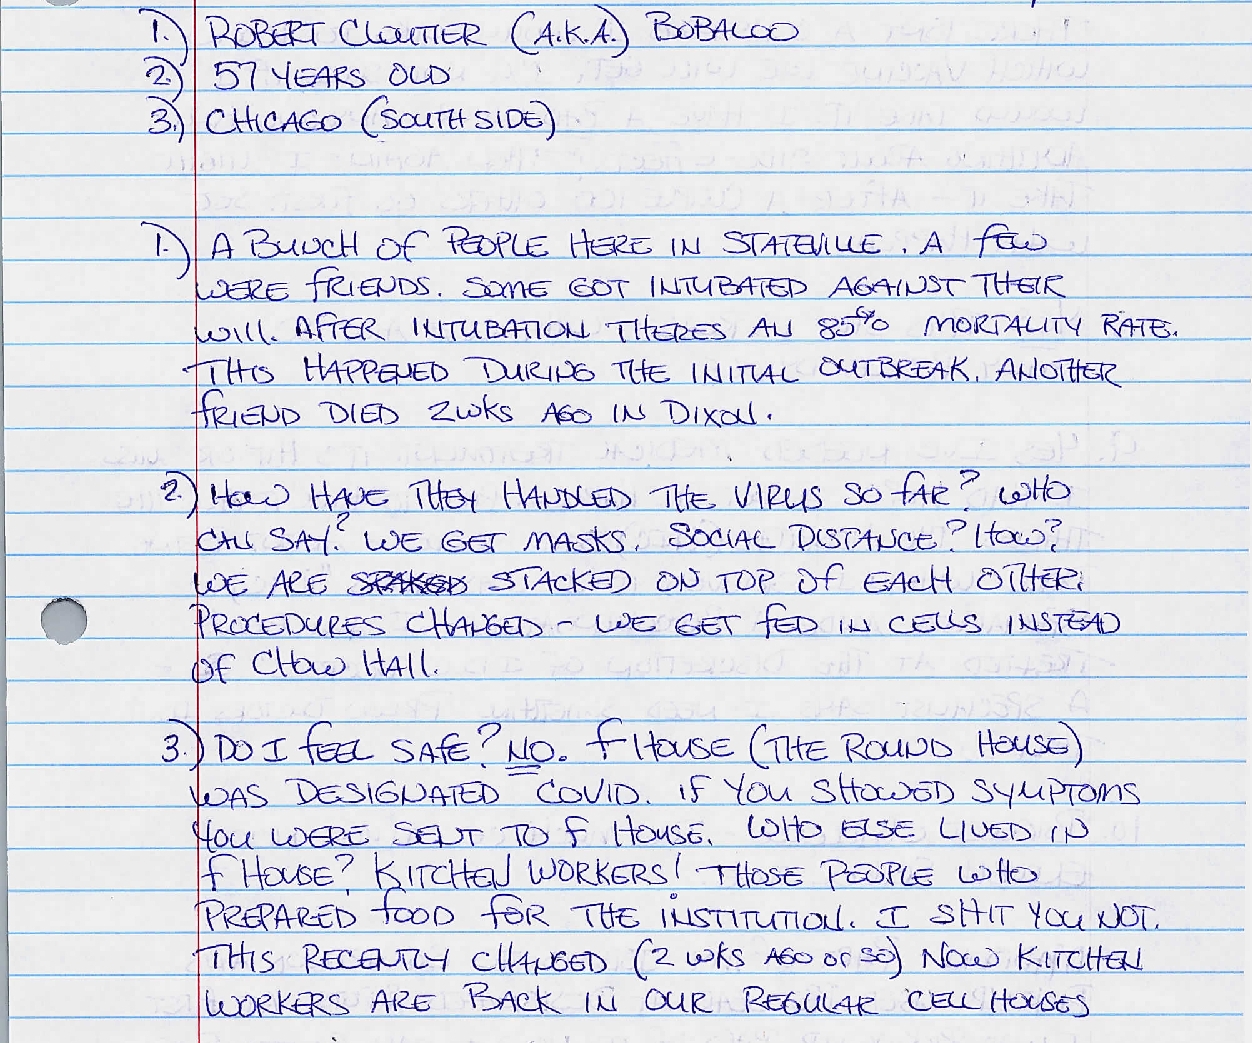 1.) ROBERT CLOUTIER (A.K.A.) BOBALOO
2.) 57 YEARS OLD
3.) CHICAGO (SOUTH SIDE)
1.) A BUNCH OF PEOPLE HERE IN STATEVILLE. A FEW
WERE FRIENDS. SOME GOT INTUBATED AGAINST THEIR
WILL. AFTER INTUBATION THERES AN 85% MORTALITY RATE.
THIS HAPPENED DURING THE INITIAL OUTBREAK. ANOTHER
FRIEND DIED 2WKS AGO IN DIXON.
2.) HOW HAVE THEY HANDLED THE VIRUS SO FAR? WHO
CAN SAY? WE GET MASKS. SOCIAL DISTANCE? HOW?
WE ARE STACKED ON TOP OF EACH OTHER.
PROCEDURES CHANGED - WE GET FED IN CELLS INSTEAD
OF CHOW HALL.
3.) DO I FEEL SAFE? NO. F HOUSE (THE ROUND HOUSE)
WAS DESIGNATED COVID. IF YOU SHOWED SYMPTOMS
YOU WERE SENT TO F HOUSE. WHO ELSE LIVED IN
F HOUSE? KITCHEN WORKERS! THOSE PEOPLE WHO
PREPARED FOOD FOR THE INSTITUTION. I SHIT YOU NOT.
THIS RECENTLY CHANGED (2 WKS AGO OR SO) NOW KITCHEN
WORKERS ARE BACK IN OUR REGULAR CELL HOUSES